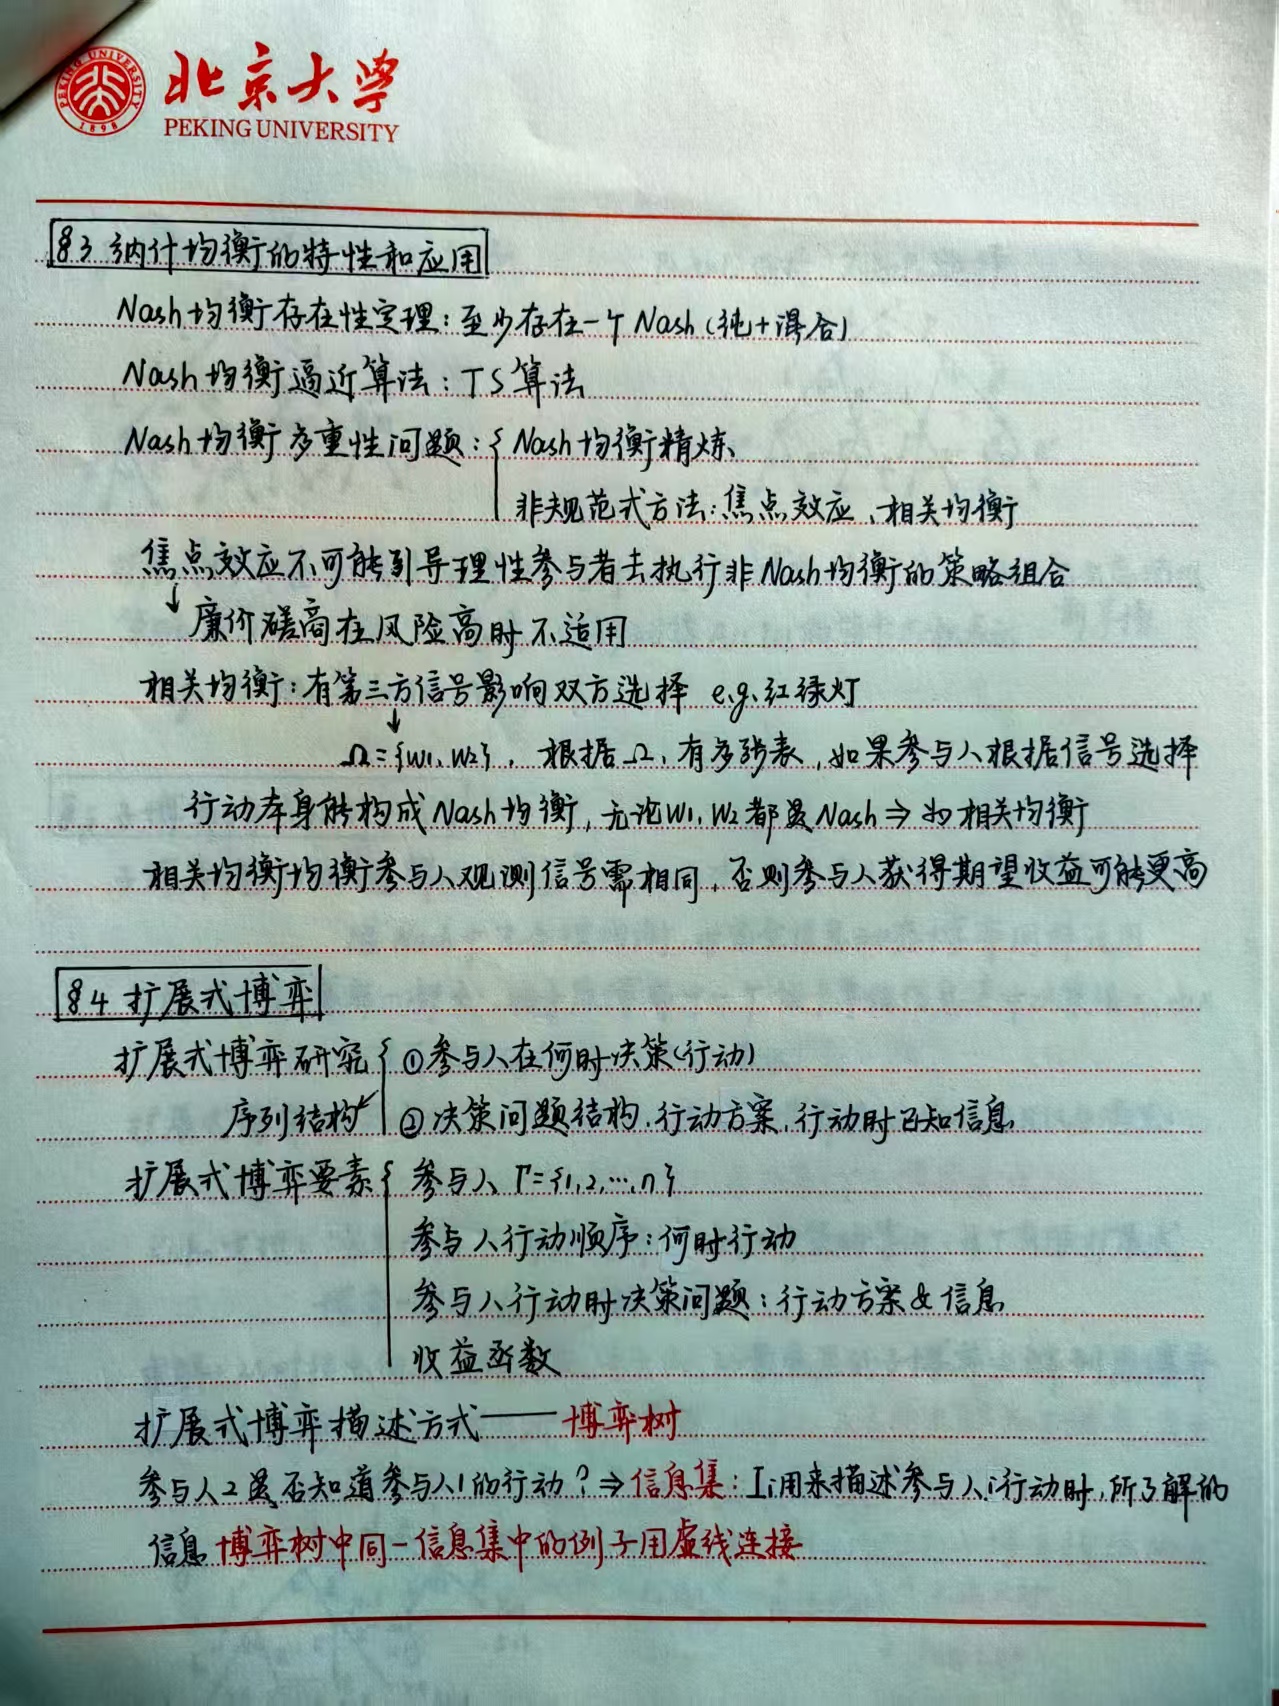 北京大学
PEKING UNIVERSITY
PEKING UNIVERSITY 1898
§3 纳什均衡的特性和应用
Nash均衡存在性定理：至少存在一个Nash（纯+混合）
Nash均衡逼近算法：TS算法
Nash均衡多重性问题：{ Nash均衡精炼、
非规范式方法：焦点效应、相关均衡
焦点效应不可能引导理性参与者去执行非Nash均衡的策略组合
↓ 廉价磋商在风险高时不适用
相关均衡：有第三方信号影响双方选择 e.g. 红绿灯
↓
Ω={w1, w2}，根据Ω，有多张表，如果参与人根据信号选择
行动本身能构成Nash均衡，无论w1, w2都是Nash⇒为相关均衡
相关均衡均衡参与人观测信号需相同，否则参与人获得期望收益可能更高
§4 扩展式博弈
扩展式博弈研究 { ①参与人在何时决策(行动)
序列结构↙ ②决策问题结构、行动方案、行动时已知信息
扩展式博弈要素 { 参与人 Γ={1,2,…,n}
参与人行动顺序：何时行动
参与人行动时决策问题：行动方案&信息
收益函数
扩展式博弈描述方式——博弈树
参与人2是否知道参与人1的行动？⇒信息集：Ii用来描述参与人i行动时，所了解的
信息 博弈树中同一信息集中的例子用虚线连接